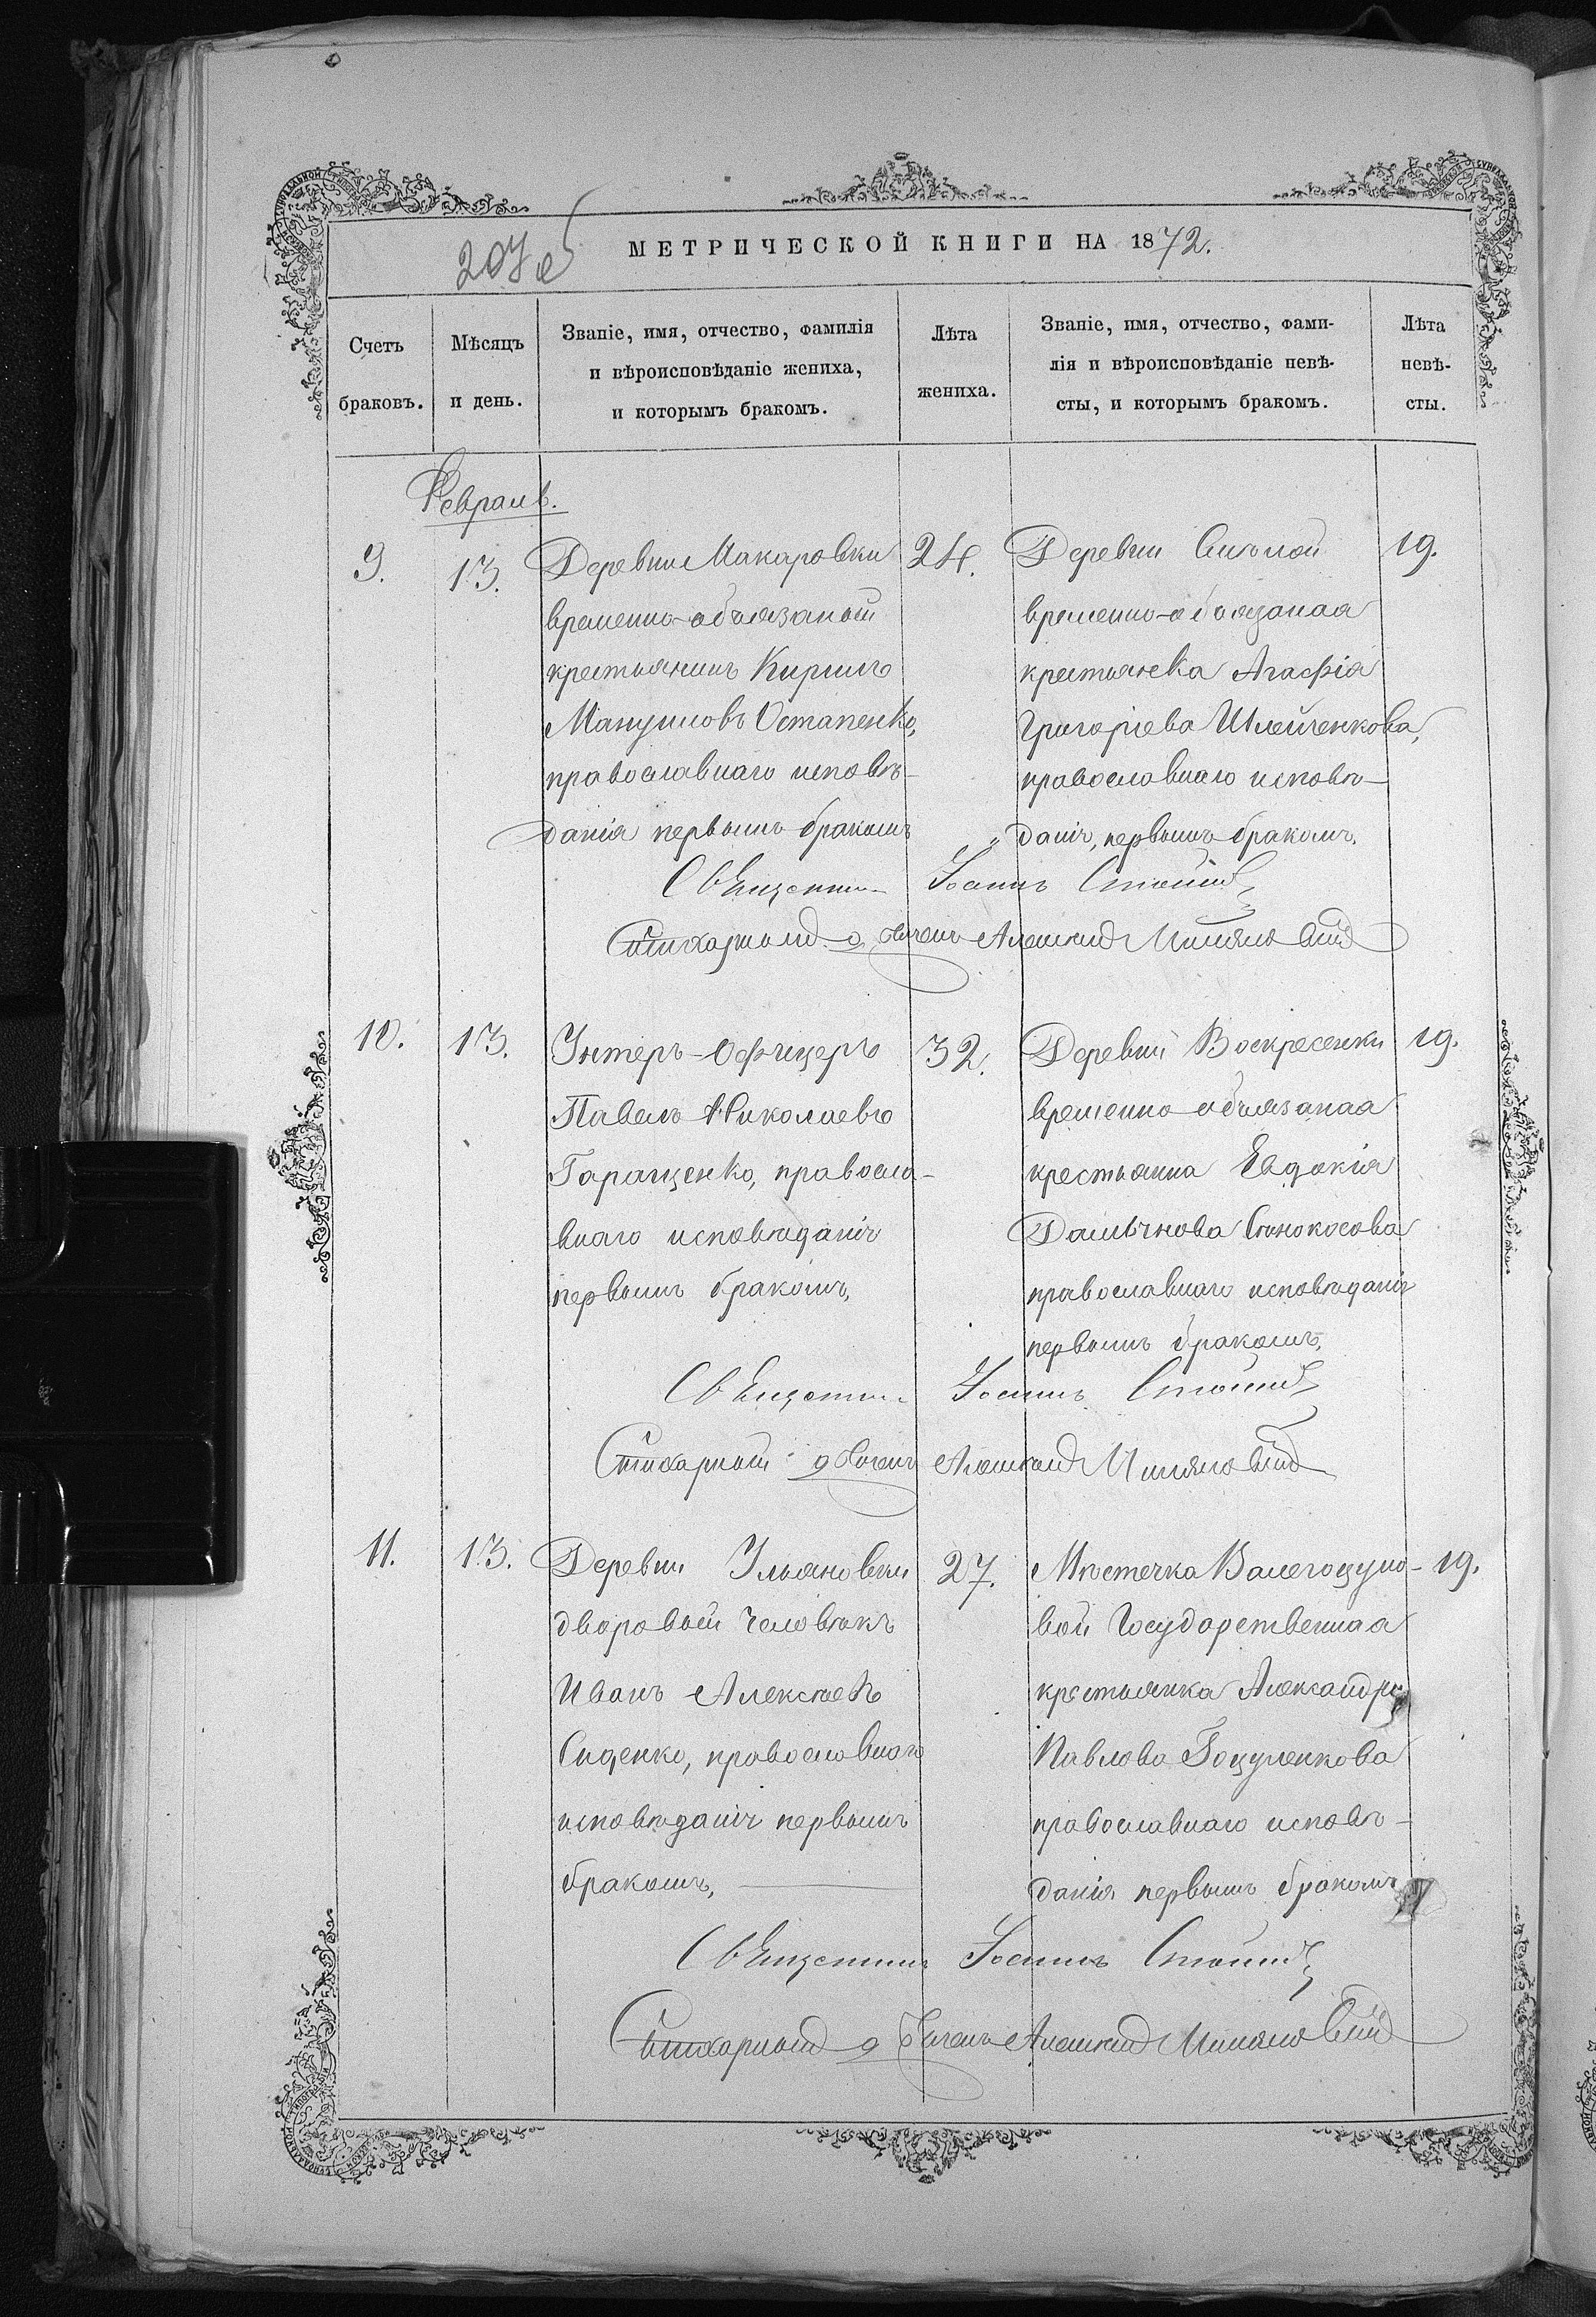 МЕТРИЧЕСКОЙ КНИГИ НА 1872.
207 об
Счетъ браковъ.
Мѣсяцъ и день.
Званіе, имя, отчество, фамилія
и вѣроисповѣданіе жениха,
и которымъ бракомъ.
Лѣта жениха.
Званіе, имя, отчество, фами-
лія и вѣроисповѣданіе невѣ-
сты, и которымъ бракомъ.
Лѣта невѣ-
сты.
Февраль.
9.
13.
Деревни Макаровки
временно-обязаный
крестьянинъ Кирилъ
Мануиловъ Остапенко,
православнаго исповѣ-
данія первымъ бракомъ
24.
Деревни
временно-обязаная
крестьянка Агафія
Григоріева Шлейченкова,
православнаго исповѣ-
данія, первымъ бракомъ.
19.
Священникъ Іоаннъ
Стихарный дьячекъ
10.
13.
Унтеръ-Офицеръ
Павелъ Николаевъ
Геращенко, правосла-
внаго исповѣданія
первымъ бракомъ,
32.
Деревни Воскресенки
временно-обязаная
крестьянка Евдокія
православнаго исповѣданія
первымъ бракомъ.
19.
Священникъ Іоаннъ
Стихарный дьячекъ
11.
13.
Деревни Ульяновки
дворовый человѣкъ
Иванъ Алексѣевъ
Сиденко, православнаго
исповѣданія первымъ
бракомъ,
27.
Мѣстечка Валегоцуло-
вой Государственная
крестьянка Александра
Павлова Гоцуленкова
православнаго исповѣ-
данія первымъ бракомъ
19.
Священникъ Іоаннъ
Стихарный дьячекъ